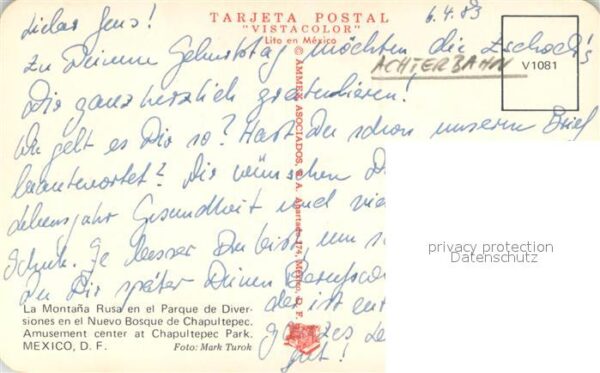 TARJETA POSTAL
"VISTACOLOR"
Lito en México
6.4.83
V1081
ACHTERBAHN
Lieber Jens!
Zu Deinem Geburtstag möchten die Zschoch's
Dir ganz herzlich gratulieren!
Wie geht es Dir so? Hast Du schon unseren Brief
beantwortet? Wir wünschen D
Lebensjahr Gesundheit und vie
Schule. Je besser Du bist, um s
Du Dir später Deinen Berufsw
der ist
ganzes Le
gut!
© AMMEX ASOCIADOS, S. A. Apartado 174, México, D. F.
privacy protection
Datenschutz
La Montaña Rusa en el Parque de Diver-
siones en el Nuevo Bosque de Chapultepec.
Amusement center at Chapultepec Park.
MEXICO, D. F. Foto: Mark Turok